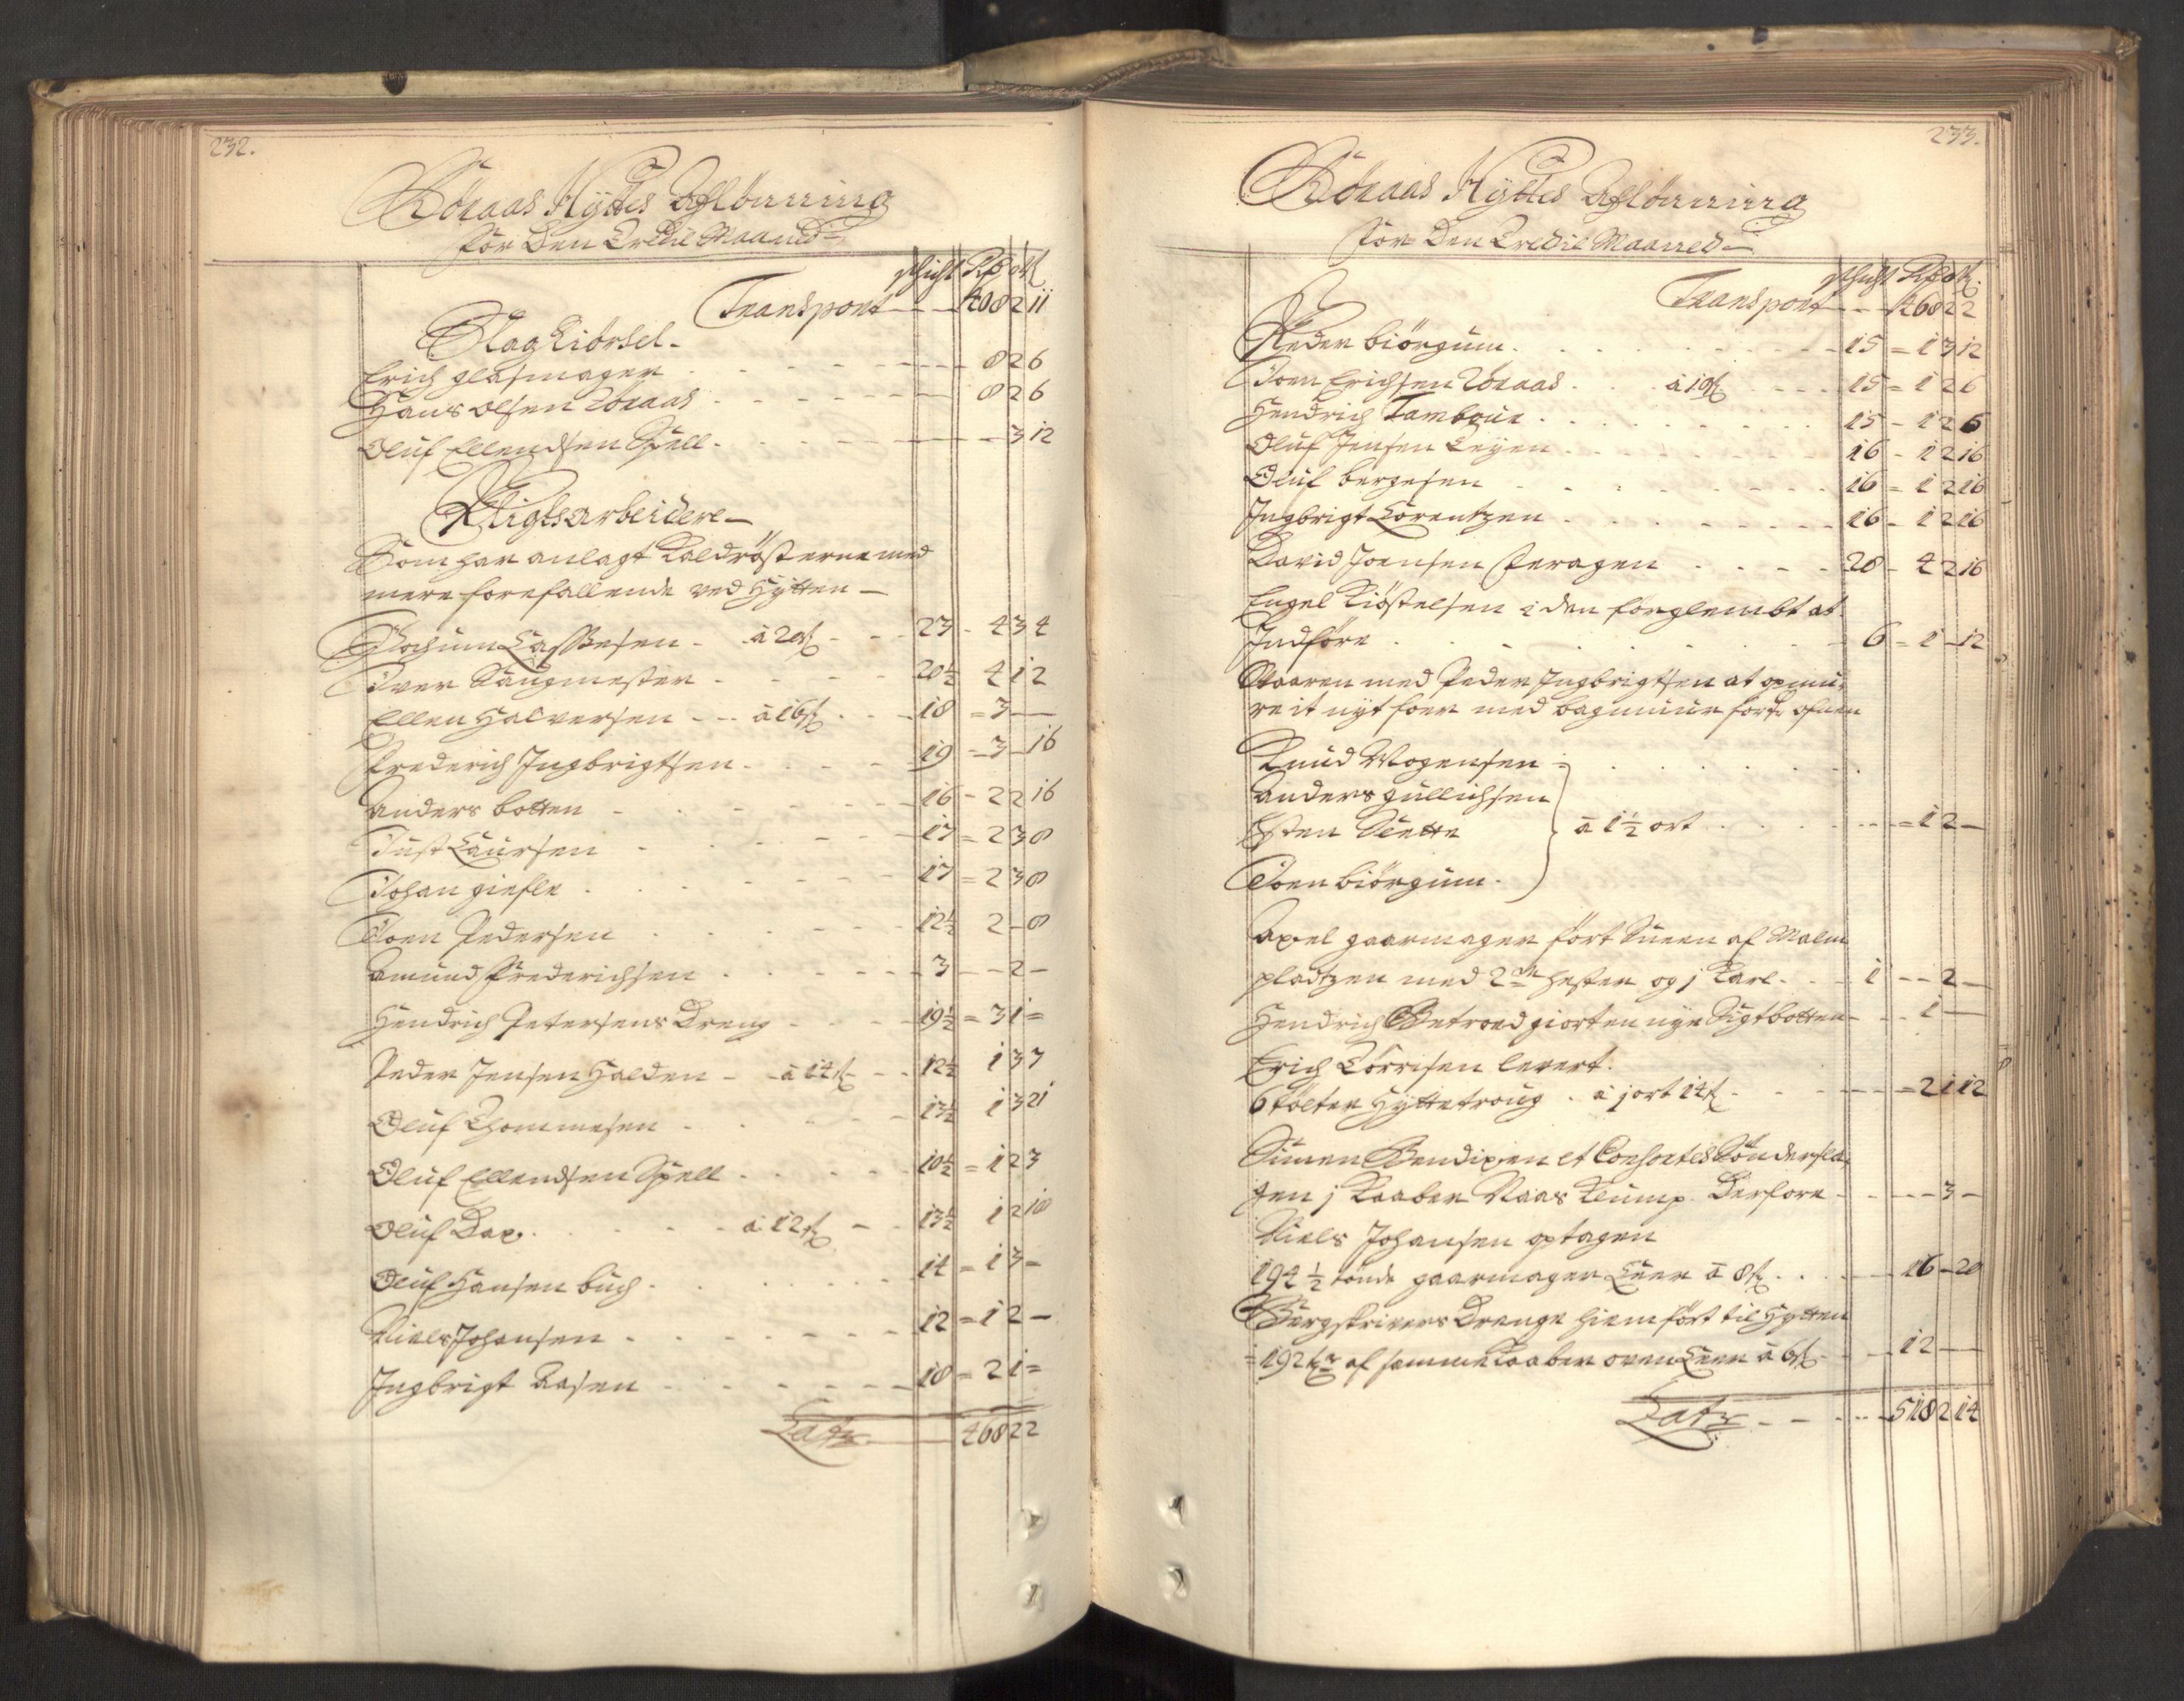 232.
Röraas Hyttes Aflönning
for den Tredie Maaned
schicht Rdr ort s
Transport - - 408 2 11
Slag Kiörsel -
Erich glasmager - - - 8 2 6
Hans Olsen Röraas - - - 8 2 6
Oluf Ellendsen Spell - - - 3 12
Schigtsarbeidere -
Som har anlagt Kaldrösterne med
mere forefallende ved Hÿtten -
Jochum Lassesen - à 20 s - - 23 - 4 3 4
Iver Saugmester - - - 20½ 4 1 2
Ellen Halversen - - à 16 s - - 18 = 3 - -
Frederich Ingbrigtsen - - - 19 = 3 - 16
Anders botten - - - 16 - 2 2 16
Just Laursen - - - 17 = 2 3 8
Johan giefle - - - 17 = 2 3 8
Joen Pedersen - - - 12½ 2 - 8
Amund Frederichsen - - - 3 - - 2 -
Hendrich Petersens Dreng - - - 19½ = 3 1 =
Peder Jensen Halden - - à 14 s - - 12½ 1 3 7
Oluf Thommesen - - - 13½ 1 3 21
Oluf Ellendsen Spell - - - 10½ = 1 2 3
Oluf Dax - - à 12 s - - 13½ 1 2 18
Oluf Hansen buch - - - 14 = 1 3 =
Niels Johansen - - - 12 = 1 2 -
Ingbrigt Aasen - - - 18 = 2 1 =
Latr - - 468 2 2
233.
Röraas Hyttes Aflönning
for den Tredie Maaned -
schicht Rdr ort s
Transport - - 468 2 2
Peder biörgum - - - 15 = 1 3 12
Joen Erichsen Röraas - à 10 s - - 15 = 1 2 6
Hendrich Tambour - - - 15 - 1 2 6
Oluf Jensen Leyen - - - 16 - 1 2 16
Oluf bergesen - - - 16 = 1 2 16
Ingbrigt Lorentzen - - - 16 - 1 2 16
David Joensen - - - 28 - 4 2 16
Engel Kiöstelsen i den forglembt at
Indföre - - - 6 = 1 - 12
Waaren med Peder Ingbrigtsen at opmu-
re it nyt foer med bagmuur for ofnen
Knud Mogensen
Anders gullichsen
Esten à 1½ ort - - - = 1 2 -
Joen biörgum -
Axel gaarmager fört Steen af Malm
pladtzen med 2de hester og j Karl - - 1 - - 2 -
Hendrich giort en nye Sigtbotten - - - 1 -
Erich Törrisen levert
6 tölter Hyttetroug - à j ort 14 s - - - = 2 1 12
Simen Bendixen et Consortes Söndersla-
gen j Kaaber Naas Klump. Derfore - - - - 3 -
Niels Johansen optagen
194½ tönde gaarmager Leer à 8 s - - - 16 - 20
Bergskrivers Drenge hiemfört til Hytten
= 192 tr af samme Kaaber oven Leer à 6 s - - 12 - -
Latr - - - 518 2 14